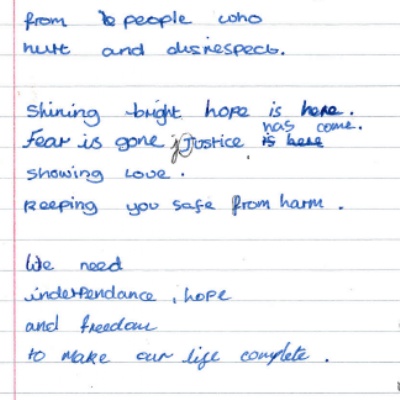 from people who
hurt and disrespect.
Shining bright hope is here.
has come.
Fear is gone, Justice is here
showing love.
Keeping you safe from harm.
We need
independance, hope
and freedom
to make our life complete.